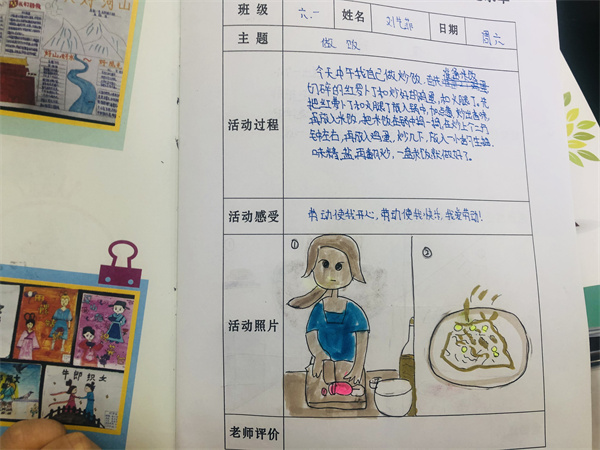 好河山
班级 六.一 姓名 日期 周六
主题 做饭
活动过程
今天中午我自己做炒饭,
切碎的红萝卜丁和炒好的鸡蛋,和火腿丁。先
把红萝卜丁和火腿丁放入锅中,加点 炒出香味,
再放入米饭,把米饭在锅中 再炒上个二三分
钟左右,再放入鸡蛋,炒几下,放入一小勺生抽
味精,盐,再翻炒,一盘米饭就做好了。
活动感受 劳动使我开心,劳动使我快乐,我爱劳动!
活动照片
① ②
牛郎织女
老师评价